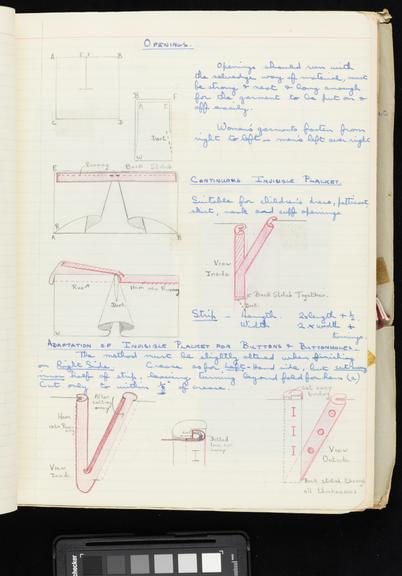 OPENINGS.
A F F B
C D
B F
A E
Dart
W
Openings should run with
the selvedge way of material, must
be strong & neat & long enough
for the garment to be put on &
off easily.
Women's garments fasten from
right to left & men's left over right
E Running Back Stitch
A B
CONTINUOUS INVISIBLE PLACKET.
Suitable for children's dress, petticoat
skirt, neck and cuff openings
View
Inside
Back Stitch Together.
Dart.
Strip - Length. 2x length + ½
Width 2 x width +
turnings.
Hem into Running
Dart
W
ADAPTATION OF INVISIBLE PLACKET FOR BUTTONS & BUTTONHOLES -
The method must be slightly altered when finishing
on Right Side. Crease as for Left-Hand side, but
half of strip, leaving turning beyond fold for hem (a)
Cut only to within ½" of crease.
Hem
into Running
After
cutting
away
View
Inside
Dotted
line cut
away
Cut away
under
View
Outside
Back stitch through
all thicknesses